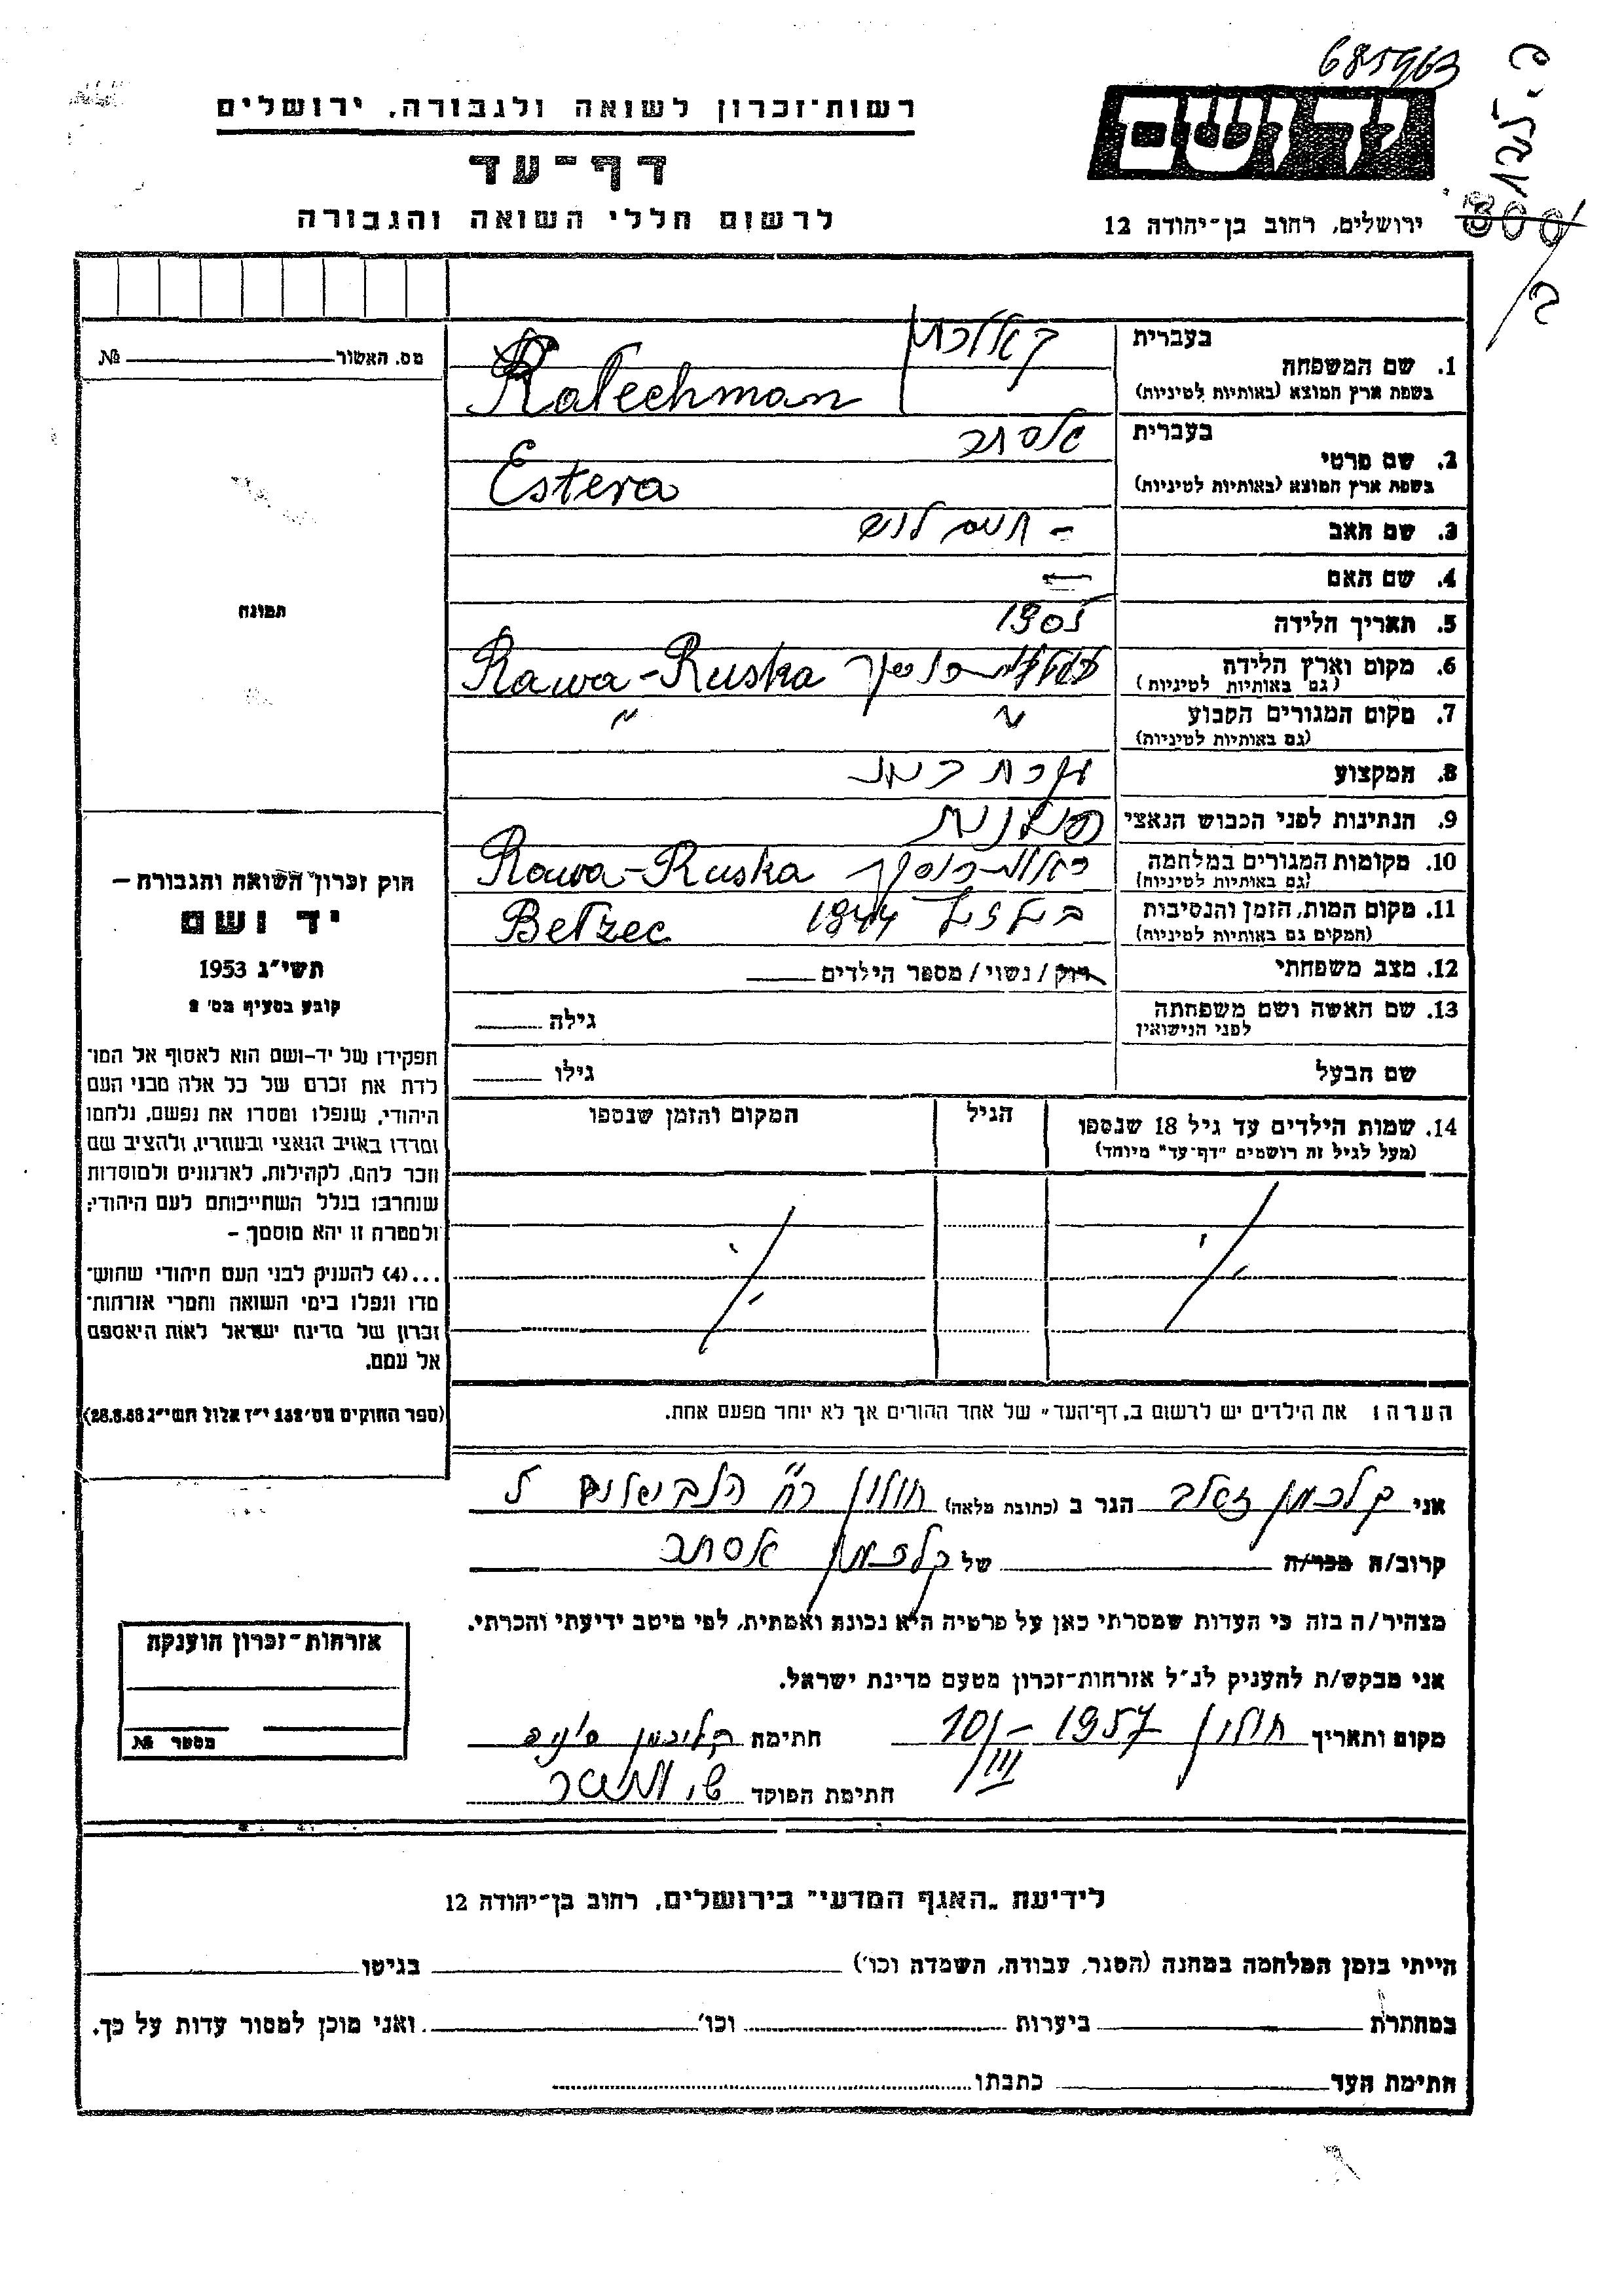 685963
רשות־זכרון לשואה ולגבורה, ירושלים
יד ושם
דף-עד
לרשום חללי השואה והגבורה
ירושלים, רחוב בן־יהודה 12
מס. האשור № 
1. שם המשפחה
בעברית
בשפת ארץ המוצא (באותיות לטיניות) Kalechman
2. שם פרטי
בעברית
בשפת ארץ המוצא (באותיות לטיניות) Estera
3. שם האב חיים
4. שם האם —
5. תאריך הלידה 1905
6. מקום וארץ הלידה
(גם באותיות לטיניות) Rawa-Ruska
7. מקום המגורים הקבוע " "
(גם באותיות לטיניות)
8. המקצוע עקרת בית
9. הנתינות לפני הכבוש הנאצי פולנית
10. מקומות המגורים במלחמה
(גם באותיות לטיניות) Rawa-Ruska
11. מקום המות, הזמן והנסיבות
(המקום גם באותיות לטיניות) 1944 Bełzec
12. מצב משפחתי רווק / נשוי / מספר הילדים
13. שם האשה ושם משפחתה
לפני הנישואין
גילה
שם הבעל גילו
14. שמות הילדים עד גיל 18 שנספו הגיל המקום והזמן שנספו
(מעל לגיל זה רושמים "דף־עד" מיוחד)
הערה: את הילדים יש לרשום ב„דף־העד" של אחד ההורים אך לא יותר מפעם אחת.
תמונה
חוק זכרון השואה והגבורה –
יד ושם
תשי"ג 1953
קובע בסעיף מס' 2
תפקידו של יד-ושם הוא לאסוף אל המו־
לדת את זכרם של כל אלה מבני העם
היהודי, שנפלו ומסרו את נפשם, נלחמו
ומרדו באויב הנאצי ובעוזריו, ולהציב שם
וזכר להם, לקהילות, לארגונים ולמוסדות
שנחרבו בגלל השתייכותם לעם היהודי;
ולמטרה זו יהא מוסמך –
...(4) להעניק לבני העם היהודי שהוש־
מדו ונפלו בימי השואה והמרי אזרחות־
זכרון של מדינת ישראל לאות היאספם
אל עמם.
(ספר החוקים מס' 132 י"ז אלול תשי"ג 28.8.53)
אני קלכמן הגר ב (כתובת מלאה) חולון
קרוב/ה מכר/ה של קלכמן אסתר
מצהיר/ה בזה כי העדות שמסרתי כאן על פרטיה היא נכונה ואמתית, לפי מיטב ידיעתי והכרתי.
אני מבקש/ת להעניק לנ"ל אזרחות־זכרון מטעם מדינת ישראל.
מקום ותאריך חולון 10/III – 1957 חתימה
חתימת הפוקד
אזרחות־זכרון הוענקה
מספר №
לידיעת „האגף המדעי" בירושלים, רחוב בן־יהודה 12
הייתי בזמן המלחמה במחנה (הסגר, עבודה, השמדה וכו') בגיטו
במחתרת ביערות וכו' ואני מוכן למסור עדות על כך.
חתימת העד כתבתו